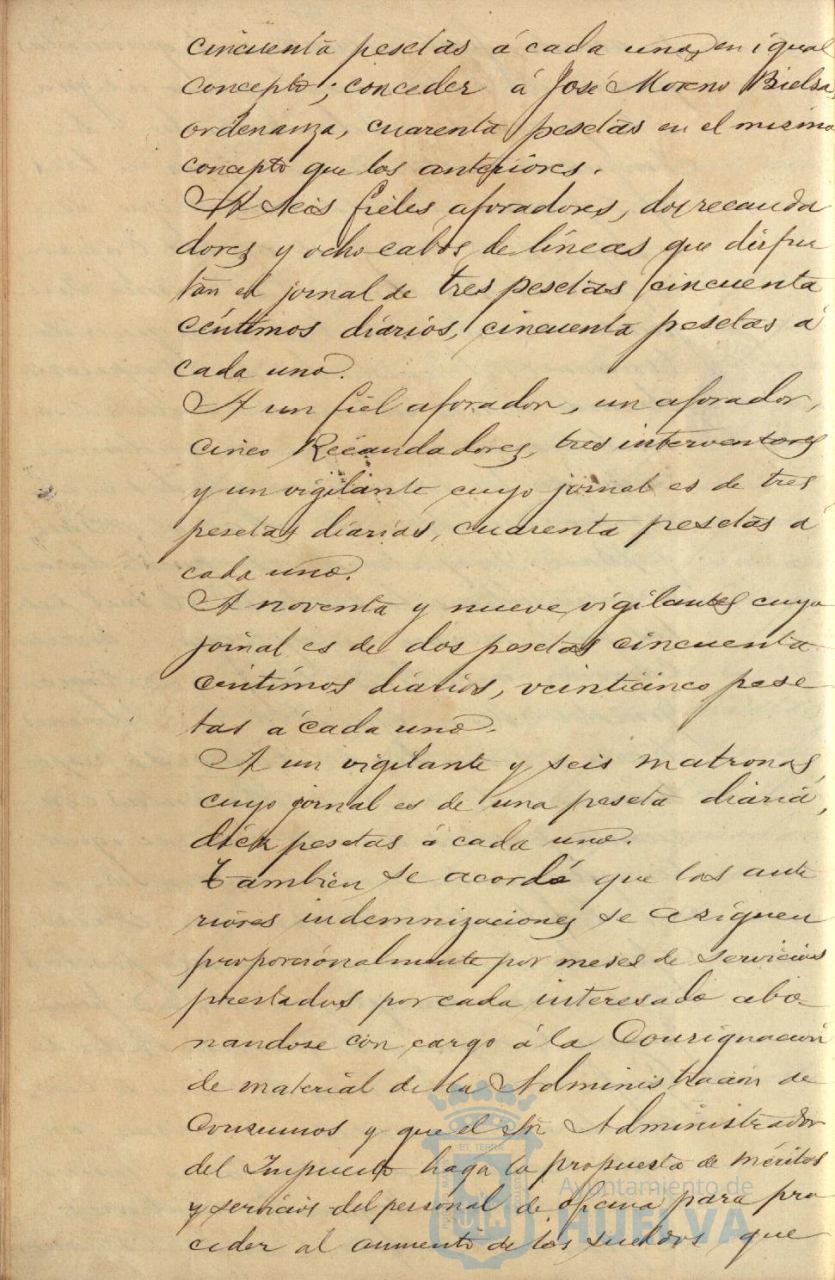 cincuenta pesetas á cada uno, en igual
concepto; conceder á José Moreno Bielsa,
ordenanza, cuarenta pesetas en el mismo
concepto que los anteriores.
A seis fieles aforadores, dos recauda
dores y ocho cabos de líneas que disfru
tan el jornal de tres pesetas cincuenta
céntimos diarios, cincuenta pesetas á
cada uno.
A un fiel aforador, un aforador,
cinco Recaudadores, tres interventores
y un vigilante cuyo jornal es de tres
pesetas diarias, cuarenta pesetas á
cada uno.
A noventa y nueve vigilantes cuyo
jornal es de dos pesetas cincuenta
céntimos diarios, veinticinco pese
tas á cada uno.
A un vigilante y seis matronas,
cuyo jornal es de una peseta diaria,
diez pesetas á cada uno.
También se acordó que las ante
riores indemnizaciones se asignen
proporcionalmente por meses de servicios
prestados por cada interesado abo-
nandose con cargo á la Consignación
de material de la Administración de
Consumos y que el Sr. Administrador
del Impuesto haga la propuesta de méritos
y servicios del personal de oficina para pro
ceder al aumento de los sueldos que
Ayuntamiento de
HUELVA